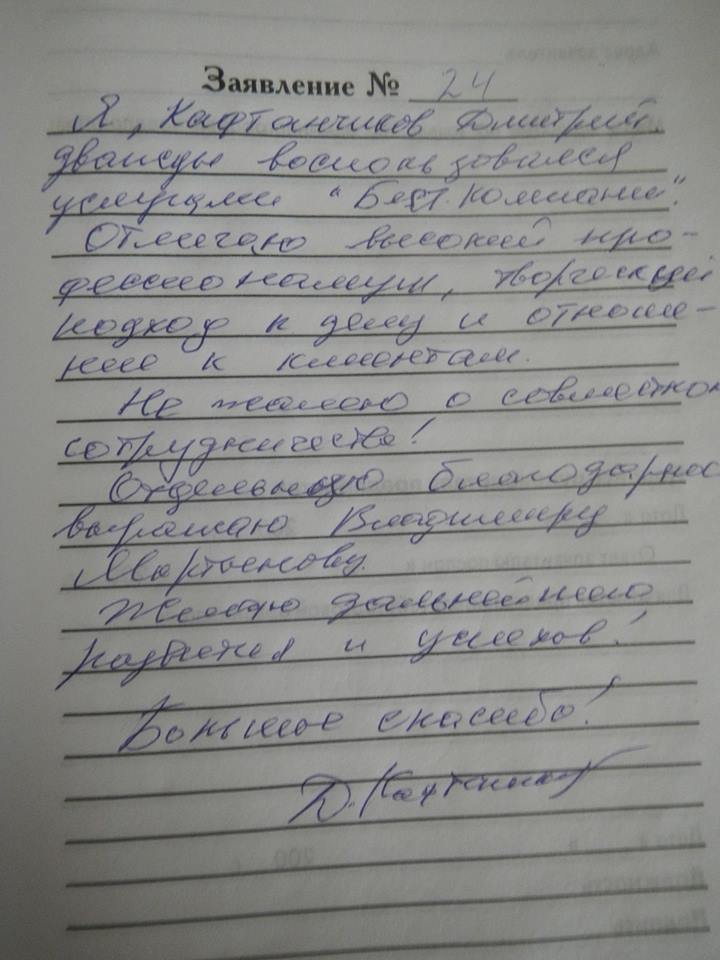 Заявление № 24
Я, Кафтанчиков Дмитрий,
дважды воспользовался
услугами "Бест. Компани".
Отмечаю высокий про-
фессионализм, творческий
подход к делу и отноше-
ние к клиентам.
Не жалею о совместном
сотрудничестве!
Отдельную благодарнос
выражаю Владимиру
Мартынову.
Желаю дальнейшего
развития и успехов!
Большое спасибо!
Д. Кафтанчиков